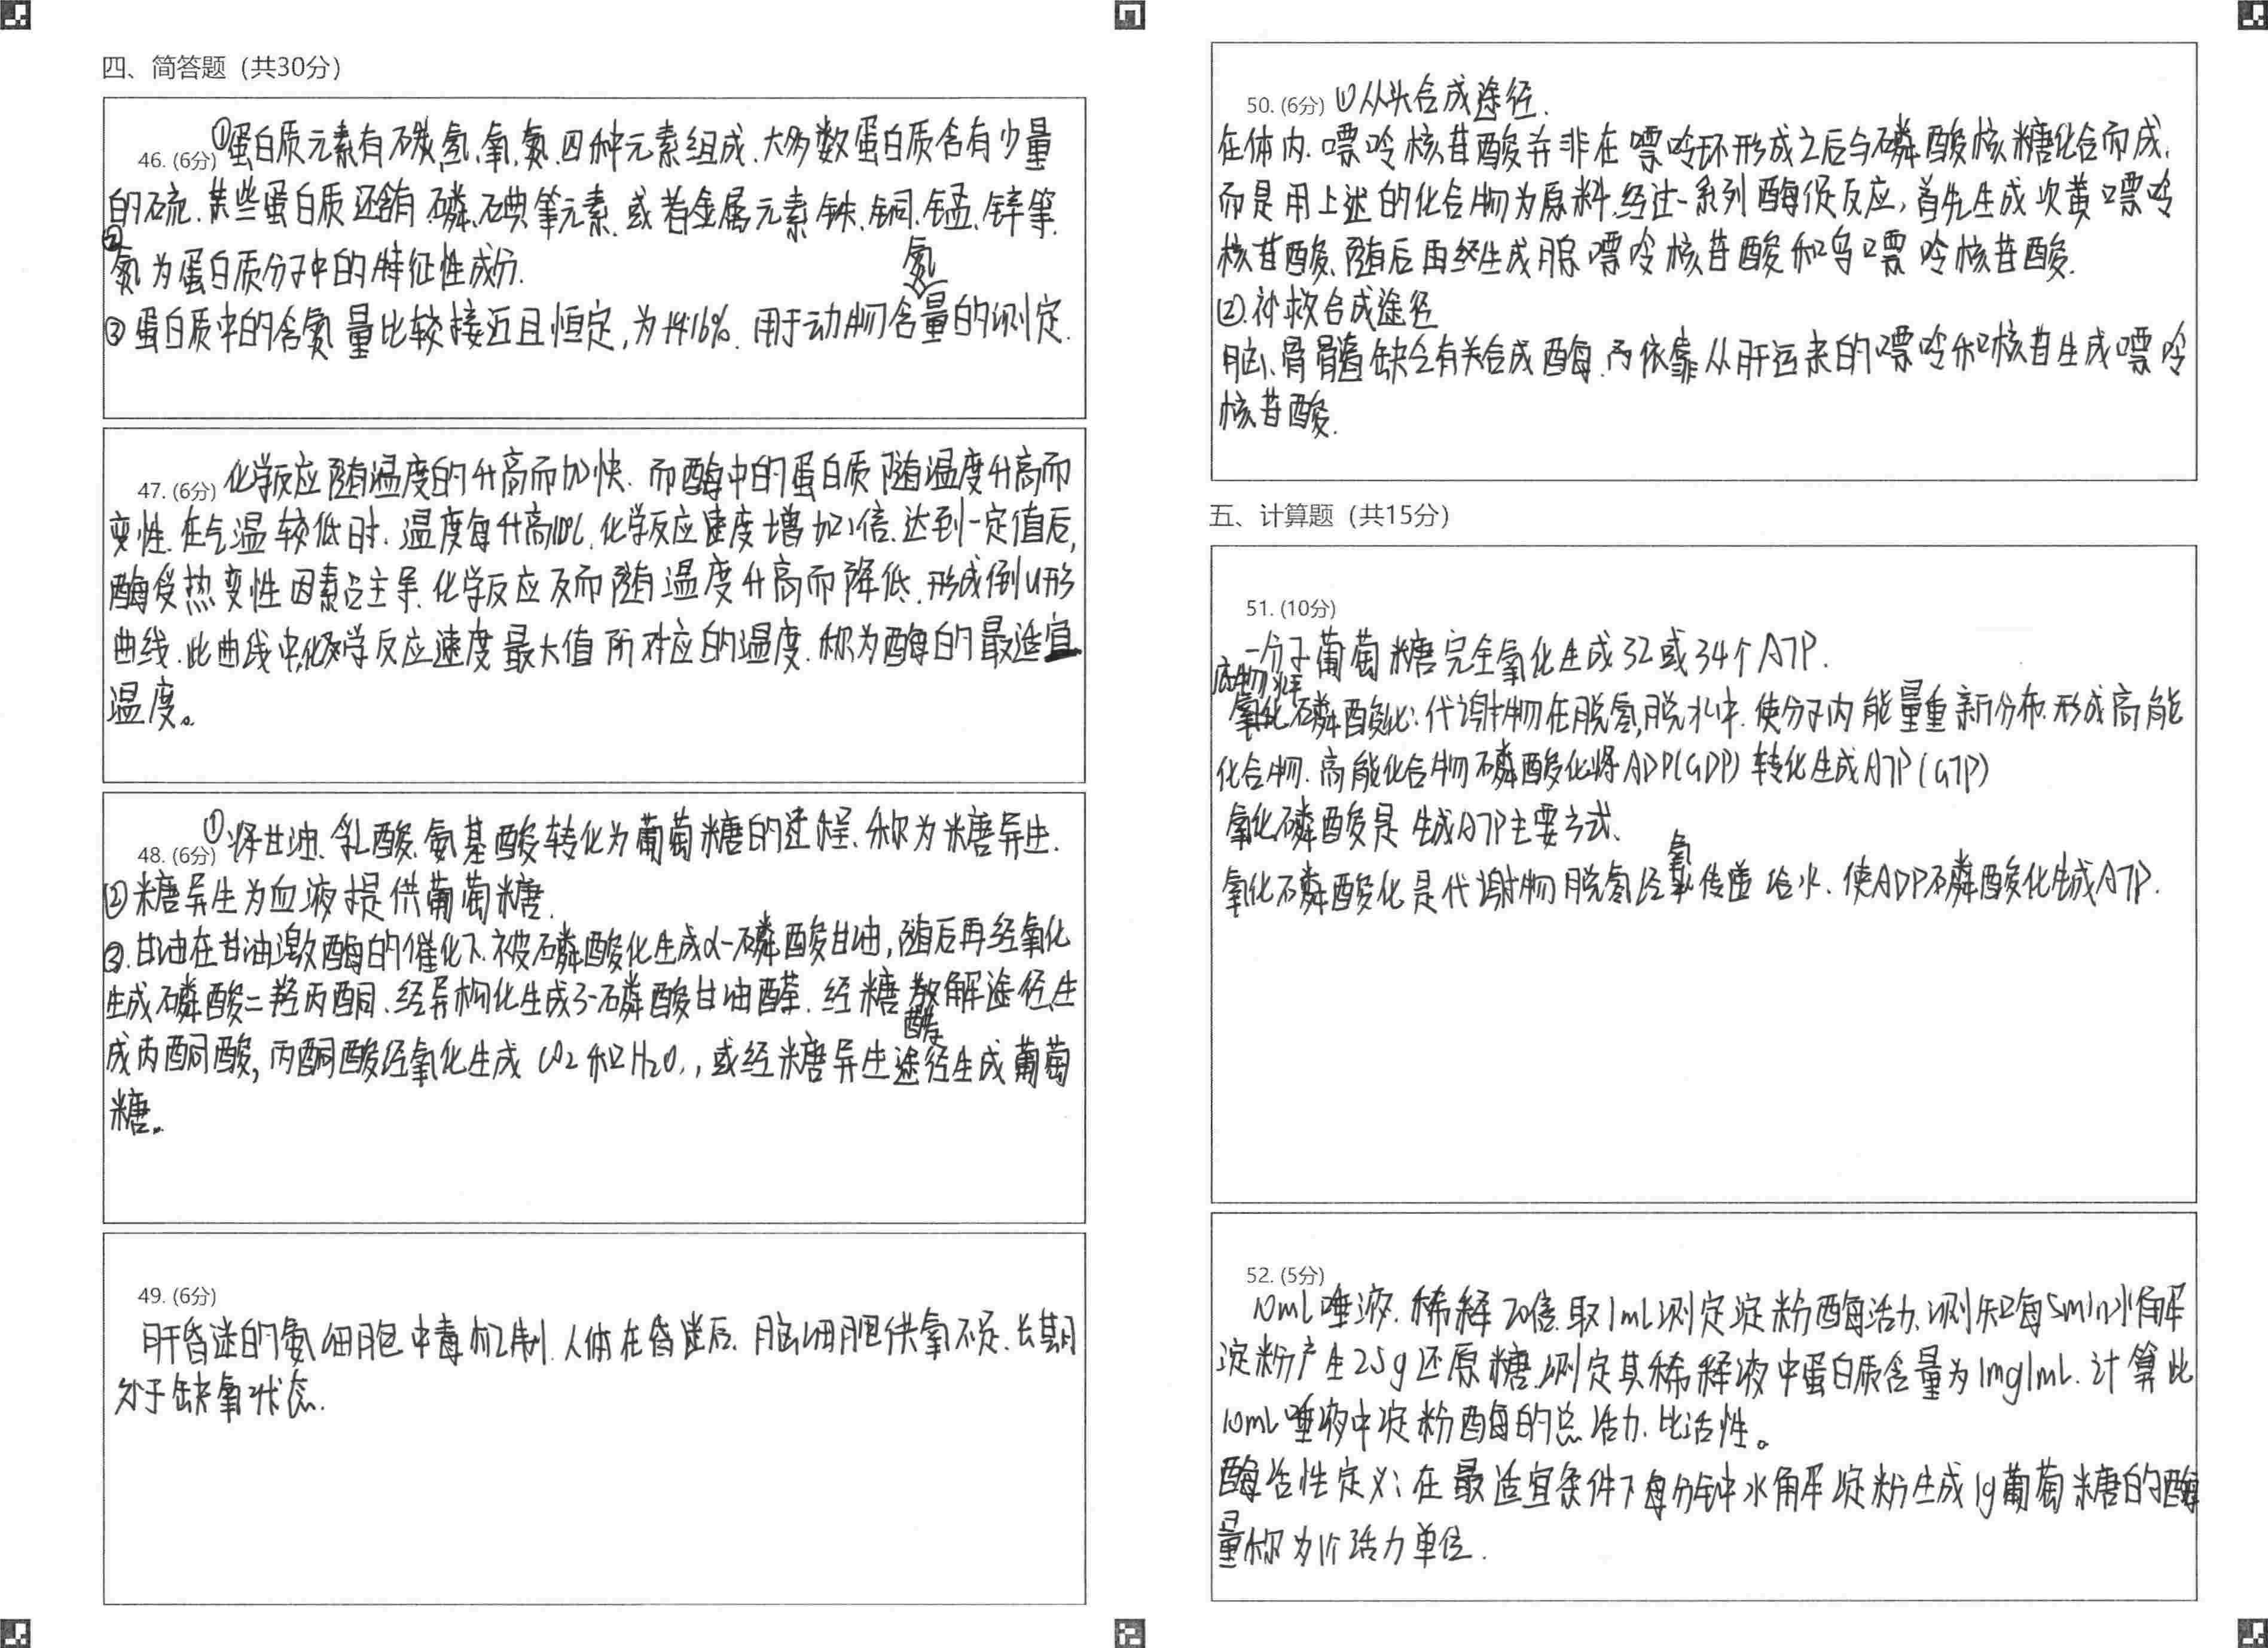 四、简答题（共30分）
46. (6分) ①蛋白质元素有碳、氢、氧、氮、四种元素组成、大多数蛋白质含有少量
的硫、某些蛋白质还含有、磷、碘等元素、或者金属元素铁、铜、锰、锌等.
②氮为蛋白质分子中的特征性成分.
③蛋白质中的含氮量比较接近且恒定,为16%. 用于动物含氮量的测定.
47. (6分) 化学反应随温度的升高而加快、而酶中的蛋白质随温度升高而
变性.在气温较低时、温度每升高10℃、化学反应速度增加1倍.达到一定值后,
酶受热变性因素占主导、化学反应反而随温度升高而降低.形成倒U形
曲线.此曲线中,化学反应速度最大值所对应的温度.称为酶的最适宜
温度。
48. (6分) ①将甘油、乳酸、氨基酸转化为葡萄糖的过程、称为糖异生.
②糖异生为血液提供葡萄糖.
③.甘油在甘油激酶的催化下.被磷酸化生成α-磷酸甘油,随后再经氧化
生成磷酸二羟丙酮、经异构化生成3-磷酸甘油醛.经糖酵解途径生
成丙酮酸,丙酮酸经氧化生成CO2和H2O.,或经糖异生途径生成葡萄
糖.
49. (6分)
肝昏迷的氨细胞中毒机制.人体在昏迷后、脑细胞供氧不足、长期
处于缺氧状态.
50. (6分) ①从头合成途径.
在体内.嘌呤核苷酸并非在嘌呤环形成之后与磷酸核糖化合而成.
而是用上述的化合物为原料.经过一系列酶促反应,首先生成次黄嘌呤
核苷酸、随后再经生成腺嘌呤核苷酸和鸟嘌呤核苷酸.
②.补救合成途径
脑、骨髓缺乏有关合成酶.而依靠从肝运来的嘌呤和核苷生成嘌呤
核苷酸.
五、计算题（共15分）
51. (10分)
一分子葡萄糖完全氧化生成32或34个ATP.
底物水平磷酸化:代谢物在脱氢,脱水中.使分子内能量重新分布.形成高能
化合物.高能化合物磷酸化将ADP(GDP)转化生成ATP(GTP)
氧化磷酸是生成ATP主要方式.
氧化磷酸化是代谢物脱氢经氧传递给水.使ADP磷酸化生成ATP.
52. (5分)
10mL唾液.稀释20倍.取1mL测定淀粉酶活力.测知每5min水解
淀粉产生25g还原糖.测定其稀释液中蛋白质含量为1mg/mL.计算此
10mL唾液中淀粉酶的总活力.比活性。
酶活性定义:在最适宜条件下每分钟水解淀粉生成1g葡萄糖的酶
量称为1个活力单位.